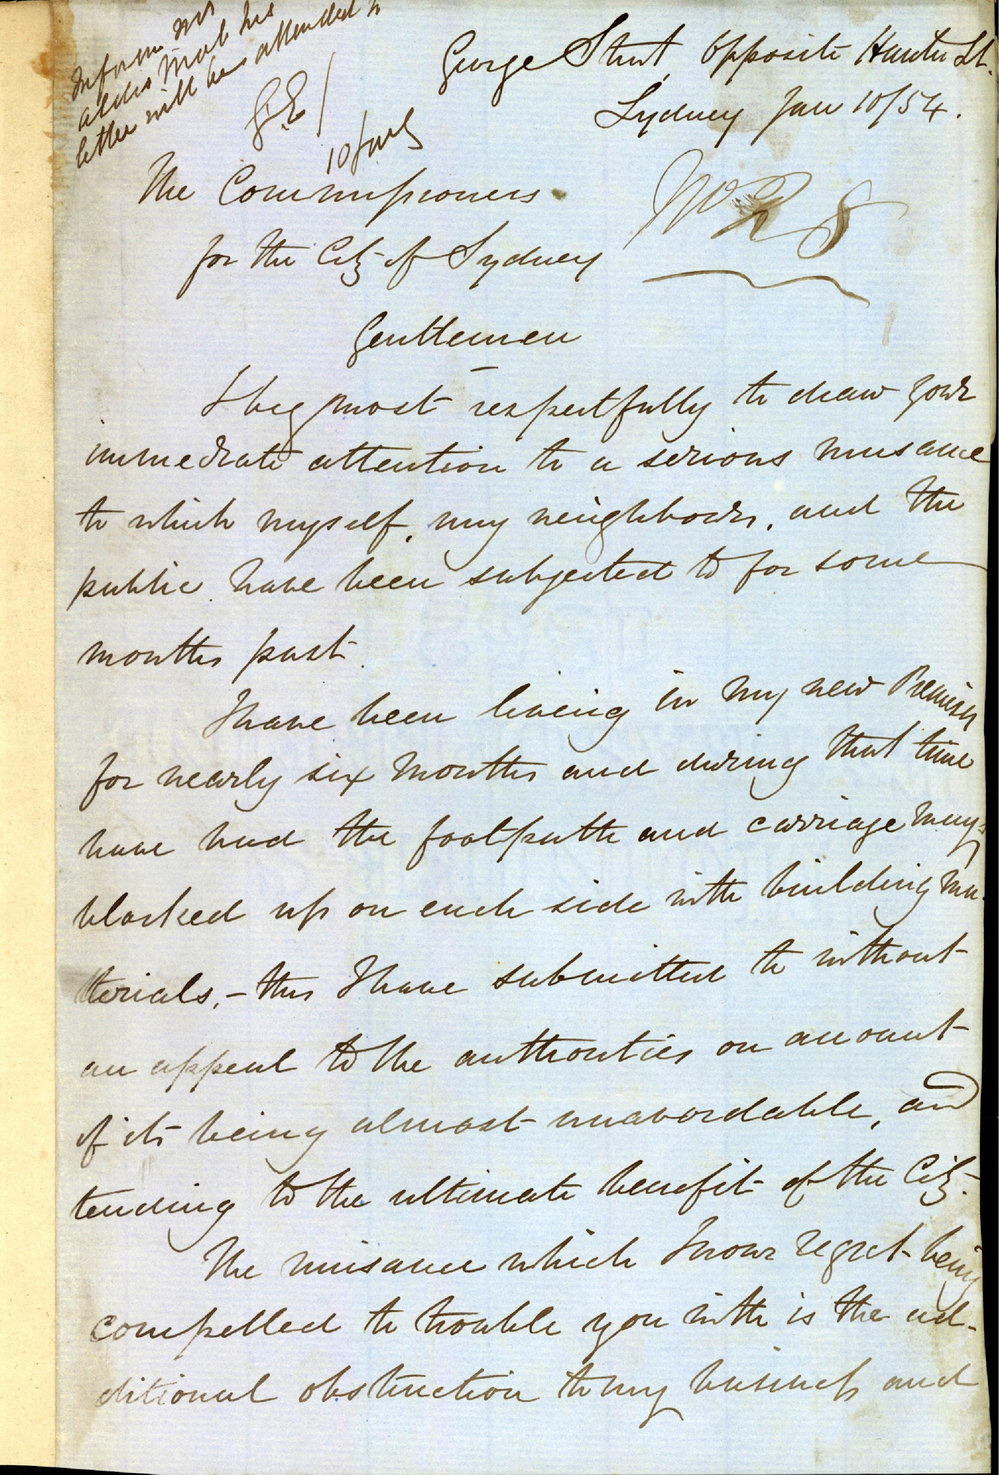 Inform Mr
letter will be attended to
10 Jany
George Street, opposite Hunter St.
Sydney Jan 10/54.
The Commissioners
for the City of Sydney
No 28
Gentlemen
I beg most respectfully to draw your
immediate attention to a serious nuisance
to which myself, my neighbours, and the
public have been subjected to for some
months past.
I have been living in my new Premises
for nearly six months and during that time
have had the footpath and carriage way
blocked up on each side with building ma-
terials, - this I have submitted to without
an appeal to the authorities on account
of its being almost unavoidable, and
tending to the ultimate benefit of the City.
The nuisance which I now regret being
compelled to trouble you with is the ad-
ditional obstruction to my business and